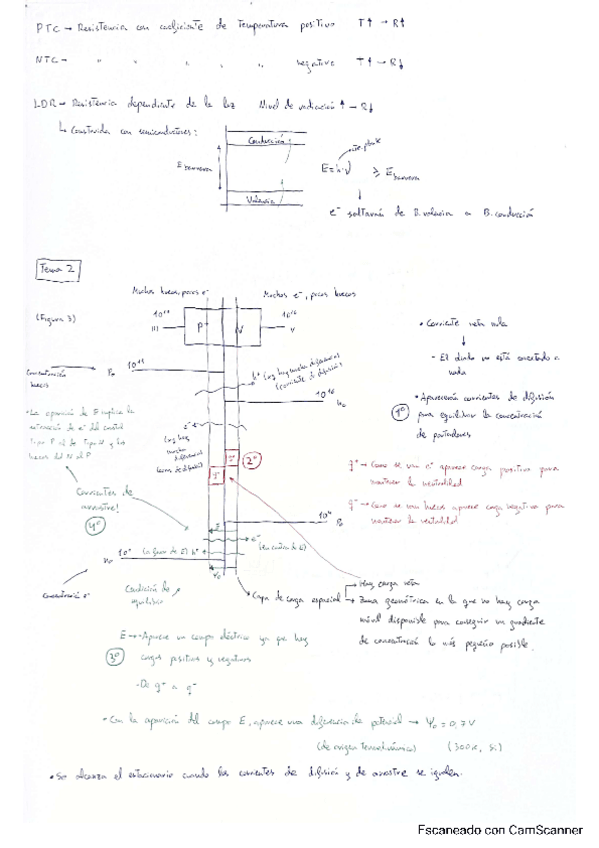 PTC → Resistencia con coeficiente de Temperatura positivo T↑ → R↑
NTC → " " " " " negativo T↑ → R↓
LDR → Resistencia dependiente de la luz Nivel de radiación ↑ → R↓
↳ Construida con semiconductores:
Conducción
cte. planck
E barrera
E = h·ν ≥ E barrera
Valencia
e⁻ saltarán de B. valencia a B. conducción
Tema 2
Muchos huecos, pocos e⁻
Muchos e⁻, pocos huecos
(Figura 3)
10¹⁶
10¹⁶
III
P
N
V
• Corriente neta nula
Concentración huecos
10¹⁶
P₀
h⁺ (Hay diferencia
(corriente de difusión)
10¹⁶
n₀
- El diodo no está conectado a nada
• Aparecerán corrientes de difusión
1º
para equilibrar la concentración
de portadores
• La aparición de E implica la
atracción de e⁻ del
tipo P al de tipo N y los
huecos del N al P
e⁻
2º
q⁺ → Como se va e⁻ aparece carga positiva para
mantener la neutralidad
q⁻ → Como se van huecos aparece carga negativa para
mantener la neutralidad
Corrientes de
arrastre!
4º
10⁴
P₀
E
(a favor de E) h⁺
e⁻
(en contra de E)
n₀
Ψ₀
Concentración e⁻
Condición de
equilibrio
Capa de carga espacial
→ Hay carga neta
→ Zona geométrica en la que no hay carga
móvil disponible para conseguir un gradiente
de concentración lo más pequeño posible.
E → Aparece un campo eléctrico ya que hay
3º
cargas positivas y negativas
- De q⁺ a q⁻
• Con la aparición del campo E, aparece una diferencia de potencial → Ψ₀ = 0,7 V
(de origen termodinámico) (300K, Si)
• Se alcanza el estacionario cuando las corrientes de difusión y de arrastre se igualen.
Escaneado con CamScanner